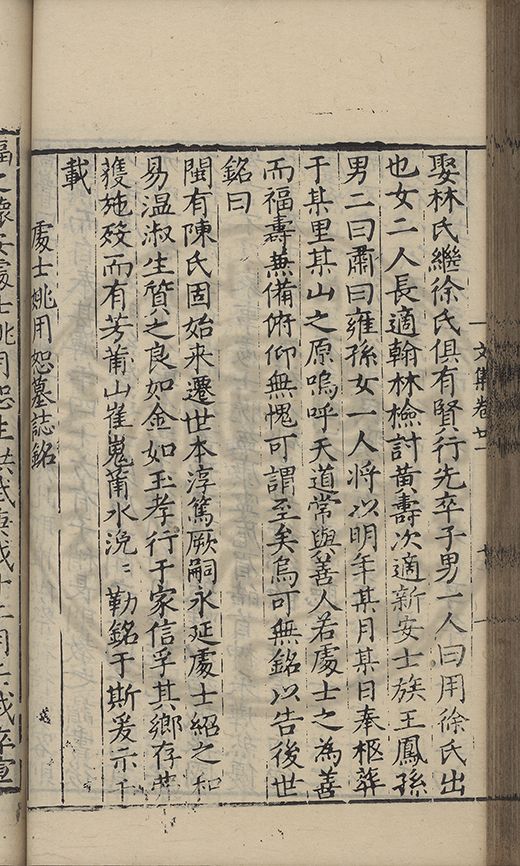 文集卷廿一
娶林氏繼徐氏俱有賢行先卒子男一人曰用徐氏出
也女二人長適翰林檢討黄壽次適新安士族王鳳孫
男二曰肅曰雍孫女一人將以明年某月某日奉柩葬
于某里某山之原嗚呼天道常與善人若處士之為善
而福壽兼備俯仰無愧可謂至矣烏可無銘以告後世
銘曰
閩有陳氏固始来遷世本淳篤厥嗣永延處士紹之和
易温淑生質之良如金如玉孝行于家信孚其鄉存
獲施殁而有芳莆山崔嵬莆水浼〻勒銘于斯爰示千
載
處士姚用恕墓誌銘
處士姚用恕